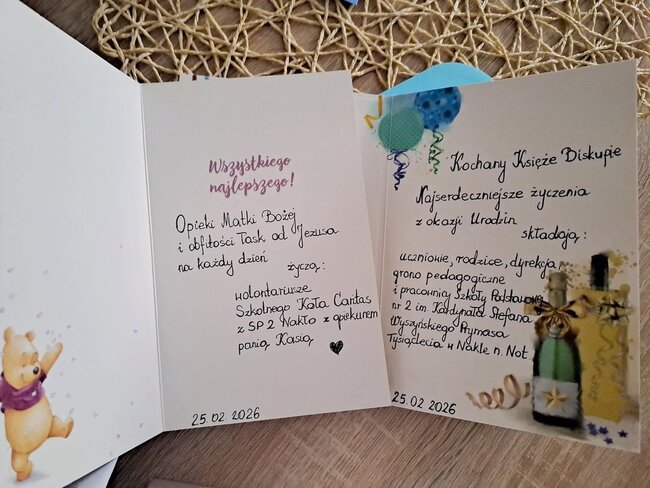 Wszystkiego
najlepszego!
Opieki Matki Bożej
i obfitości Łask od Jezusa
na każdy dzień
życzą:
wolontariusze
Szkolnego Koła Caritas
z SP 2 Nakło z opiekunem
panią Kasią
25.02.2026
Kochany Księże Biskupie
Najserdeczniejsze życzenia
z okazji Urodzin
składają:
uczniowie, rodzice, dyrekcja,
grono pedagogiczne
i pracownicy Szkoły Podstawowej
nr 2 im Kardynała Stefana
Wyszyńskiego Prymasa
Tysiąclecia w Nakle n. Not.
25.02.2026